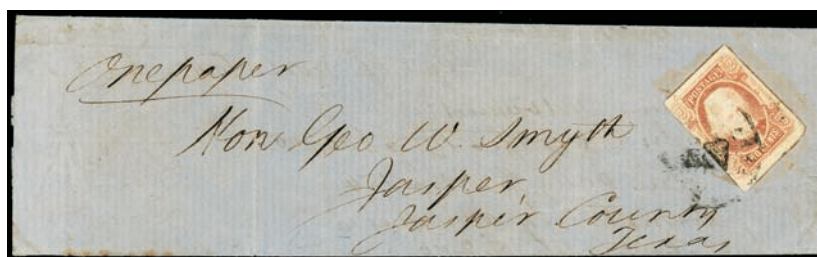 One paper
Hon Geo W. Smyth
Jasper,
Jasper County
Texas
POSTAGE